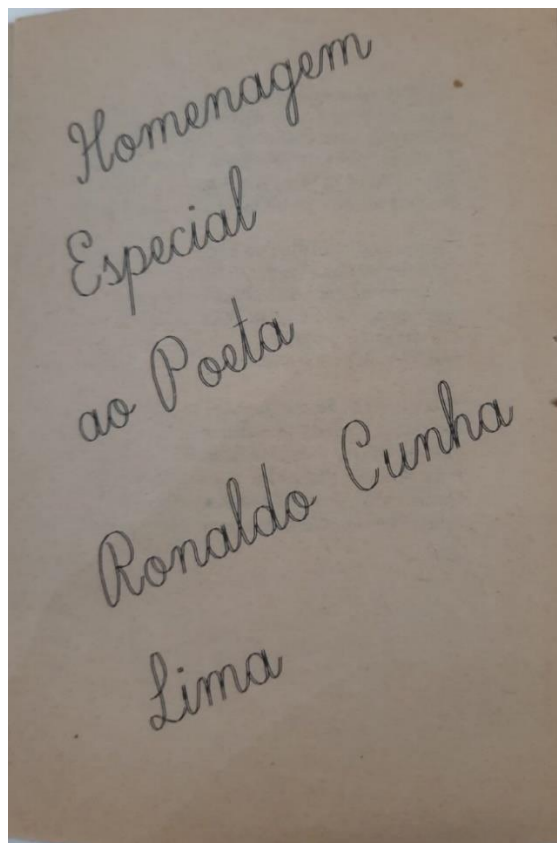 Homenagem
Especial
ao Poeta
Ronaldo Cunha
Lima